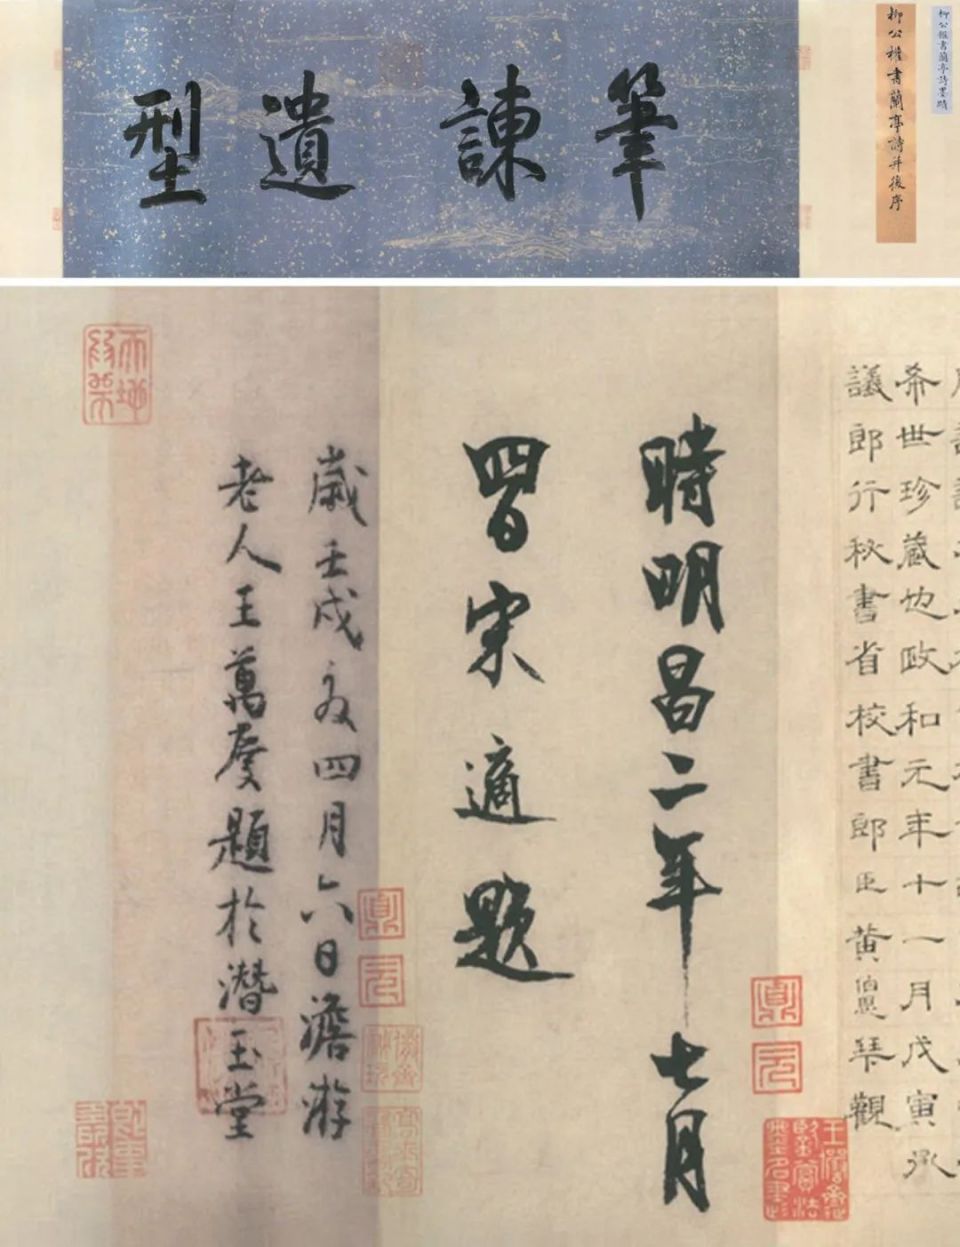 柳公權書蘭亭詩墨蹟
柳公權書蘭亭詩并後序
筆諫遺型
希世珍藏也政和元年十一月戊寅承
議郎行秘書省校書郎臣黃伯思觀
時明昌二年七月
四日宋適題
歲壬戌夏四月六日澹游
老人王萬慶題於潛玉堂